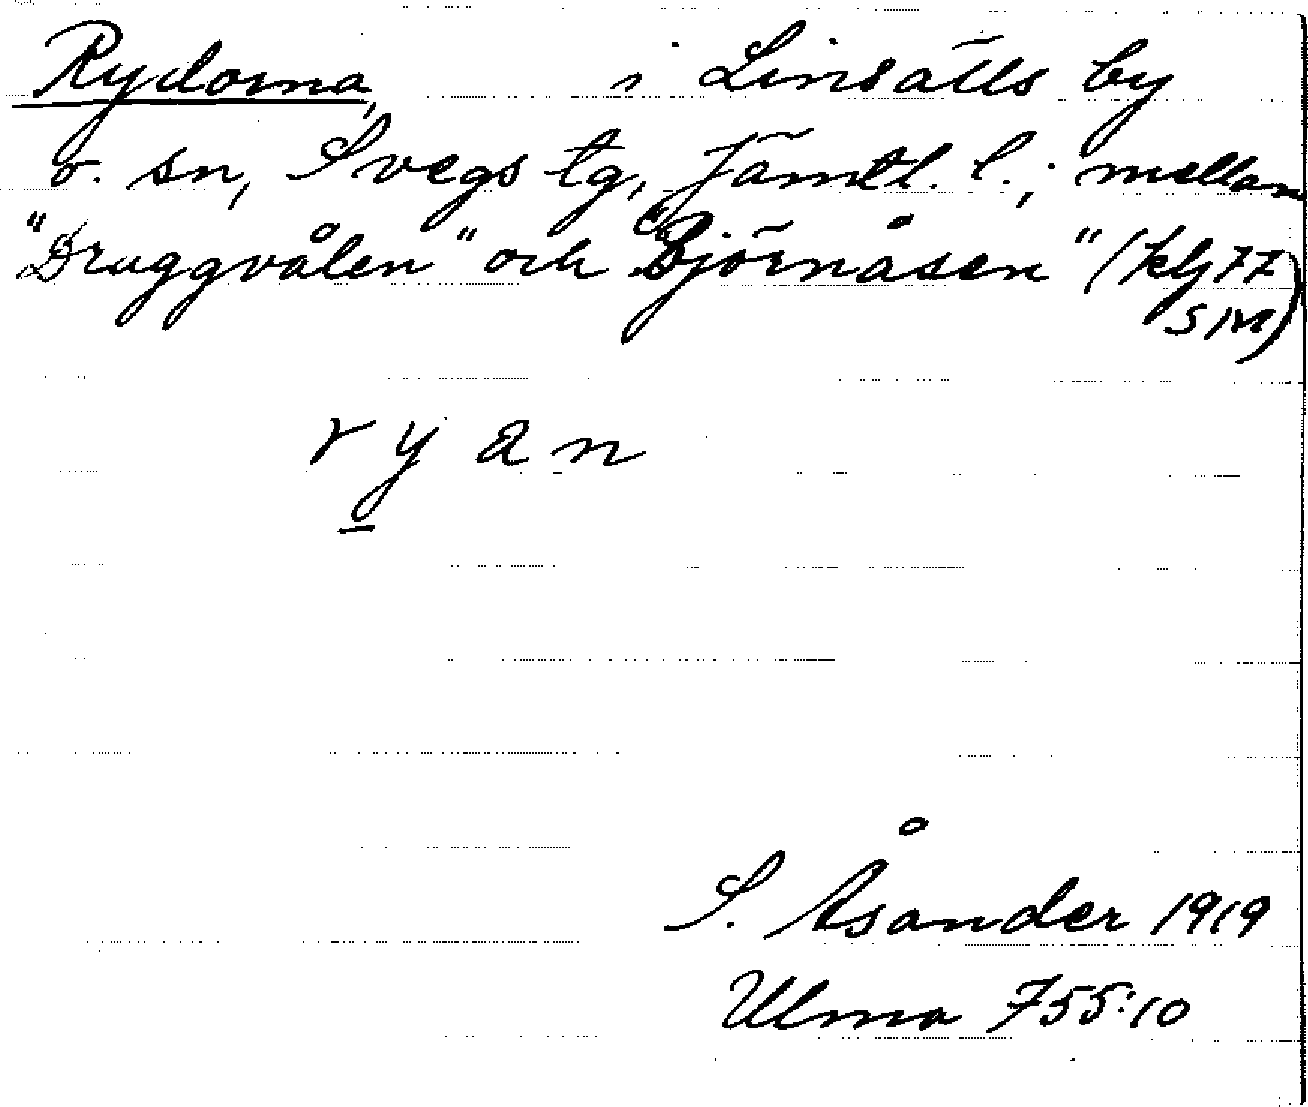 Rydorna, i Linsälls by
o. sn, Svegs tg, Jämtl. l.; mellan
"Druggvålen" och "Björnåsen" (klj 77
SM)
r y a n
S. Åsander 1919
Ulma 755:10